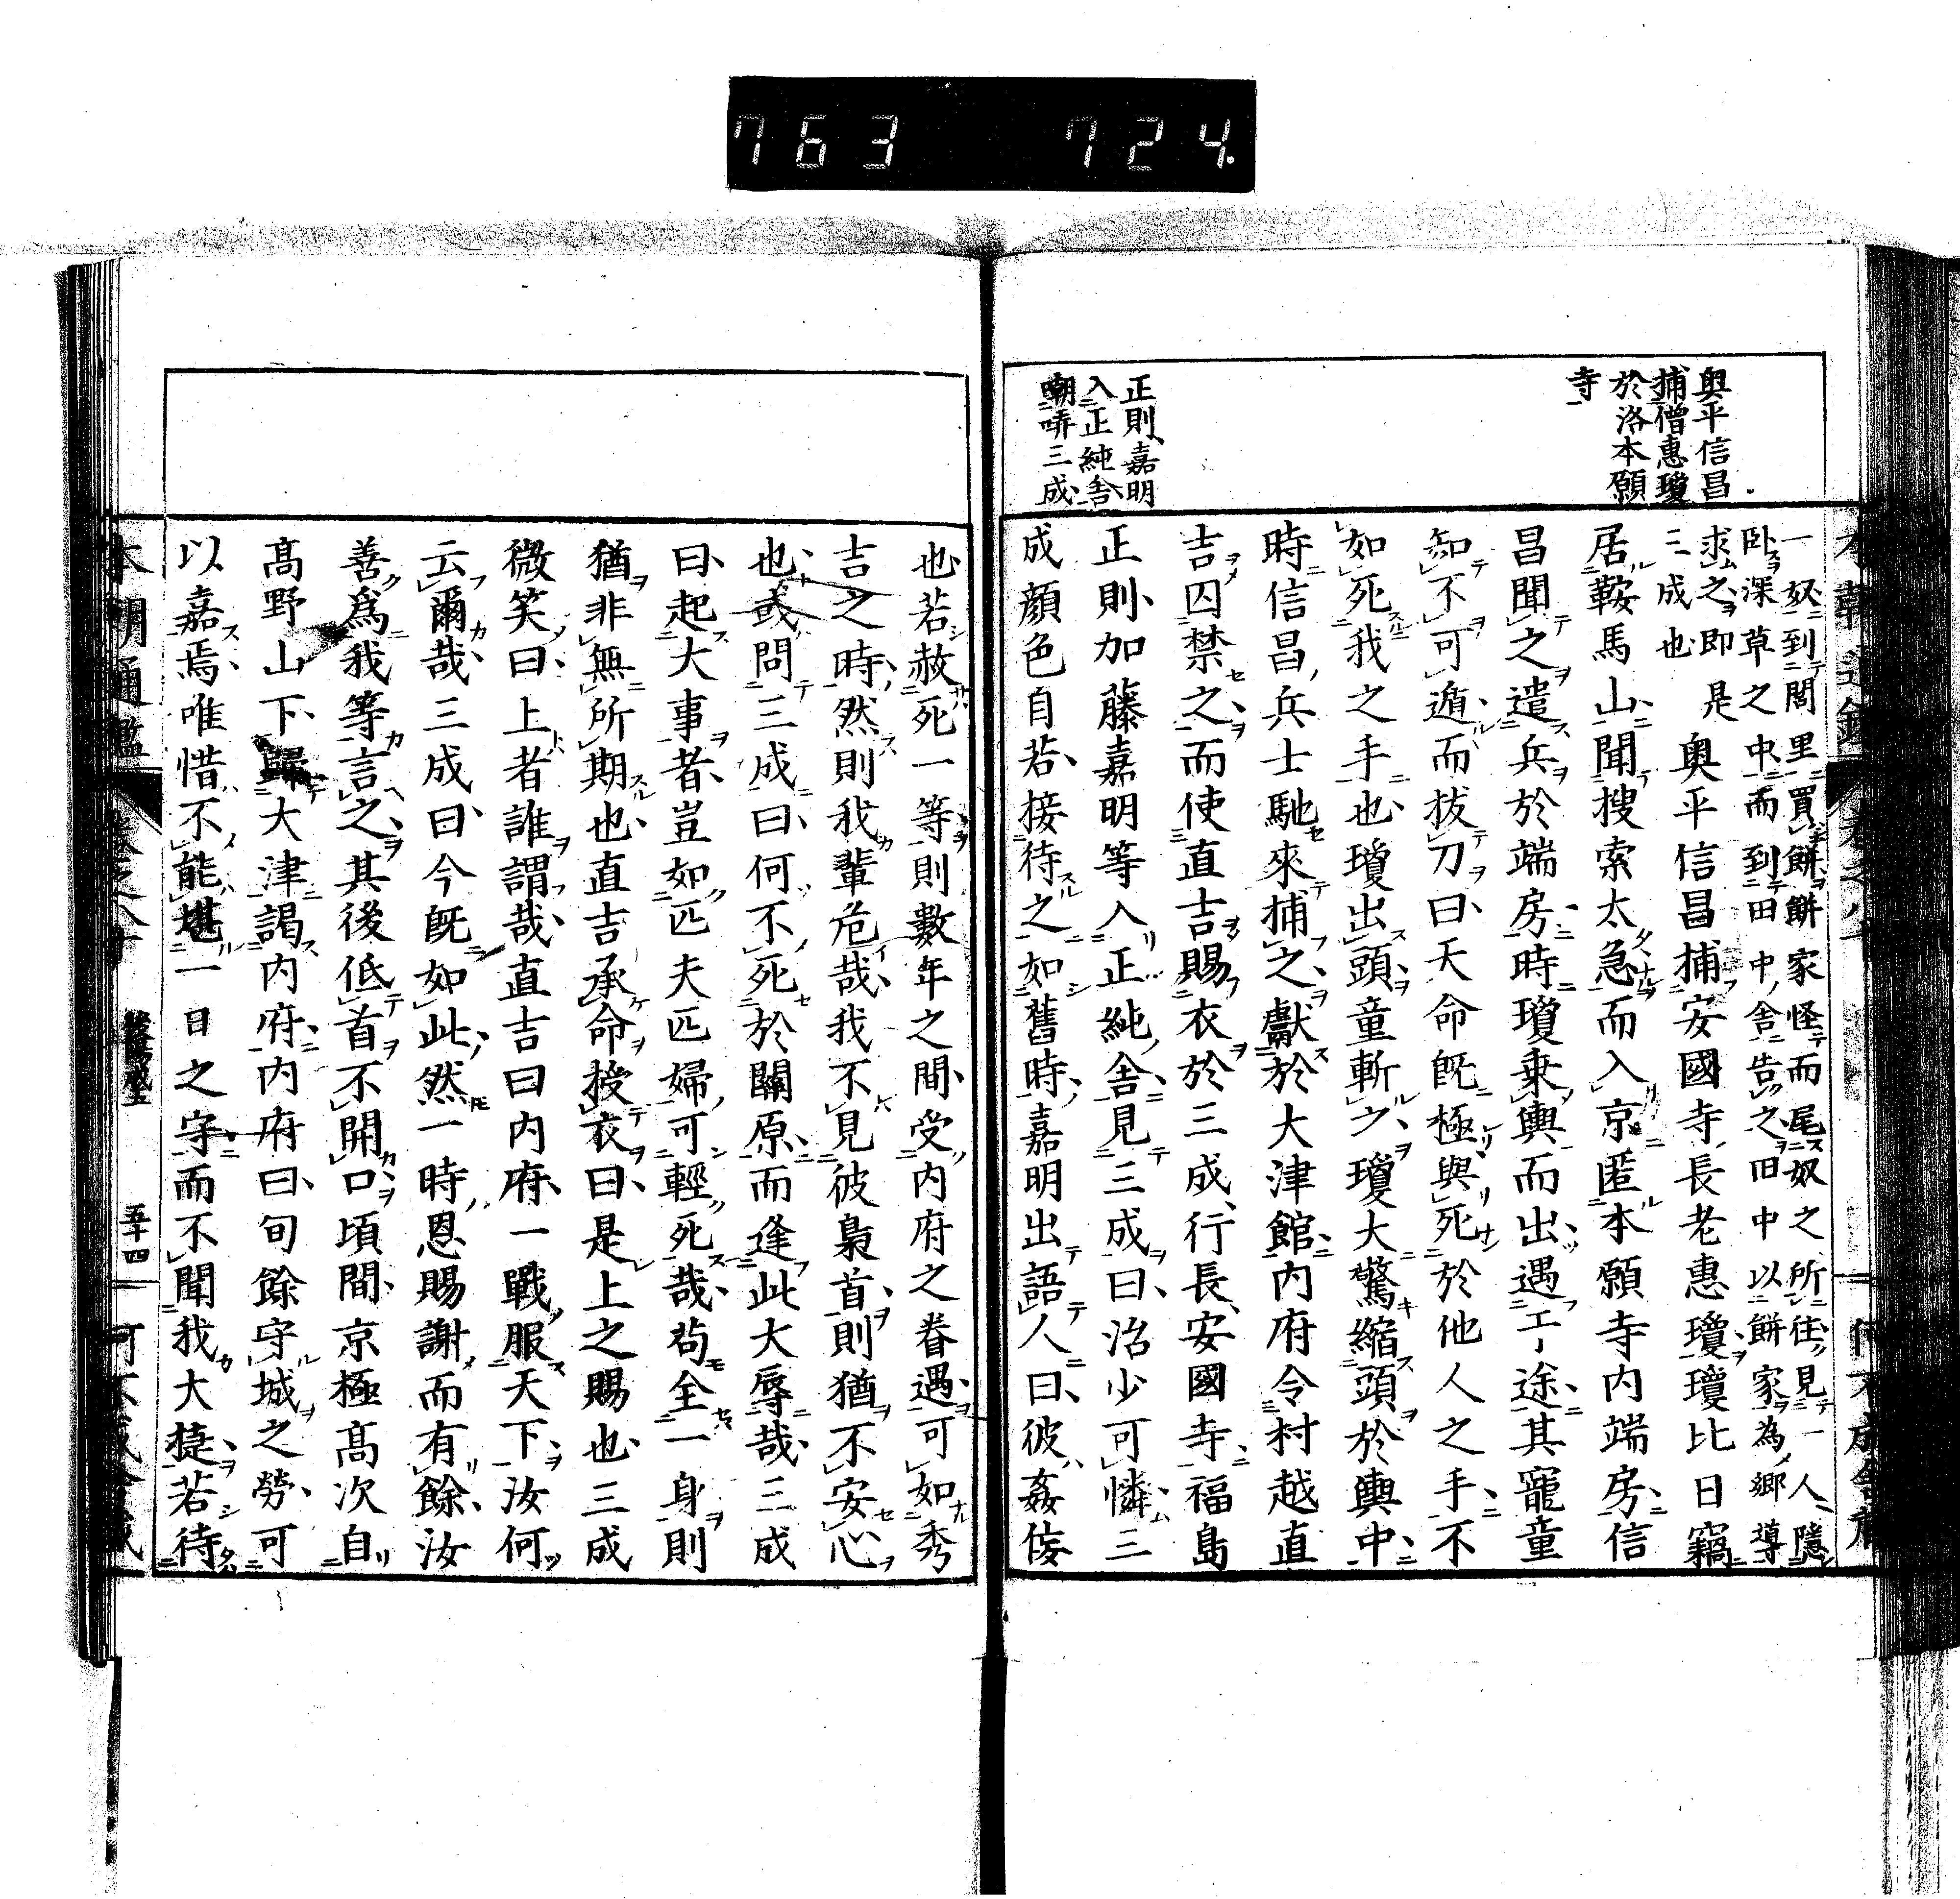 763 724.
奧平信昌
捕僧惠瓊
於洛本願
寺
正則嘉明
入正純舎
嘲哢三成
一奴到閭里買餅餅家怪而尾奴之所往見一人隱
臥深草之中而到田中舎告之田中以餅家為郷導
求之即是
三成也
奧平信昌捕安國寺長老惠瓊瓊比日竊
居鞍馬山聞搜索太急而入京匿本願寺内端房信
昌聞之遣兵於端房時瓊乗輿而出遇于途其寵童
知不可遁而拔刀曰天命既極與死於他人之手不
如死我之手也瓊出頭童斬之瓊大驚縮頭於輿中
時信昌兵士馳來捕之獻於大津館内府令村越直
吉囚禁之而使直吉賜衣於三成行長安國寺福島
正則加藤嘉明等入正純舎見三成曰治少可憐三
成顔色自若接待之如舊時嘉明出語人曰彼姦佞
也若赦死一等則數年之間受内府之眷遇可如秀
吉之時然則我輩危哉我不見彼梟首則猶不安心
也或問三成曰何不死於關原而逢此大辱哉三成
曰起大事者豈如匹夫匹婦可輕死哉苟全一身則
猶非無所期也直吉承命授衣曰是上之賜也三成
微笑曰上者誰謂哉直吉曰内府一戰服天下汝何
云爾哉三成曰今既如此然一時恩賜謝而有餘汝
善爲我等言之其後低首不開口頃間京極髙次自
髙野山下歸大津謁内府内府曰旬餘守城之勞可
以嘉焉唯惜不能堪一日之守而不聞我大捷若待
本朝通鑑
五十四